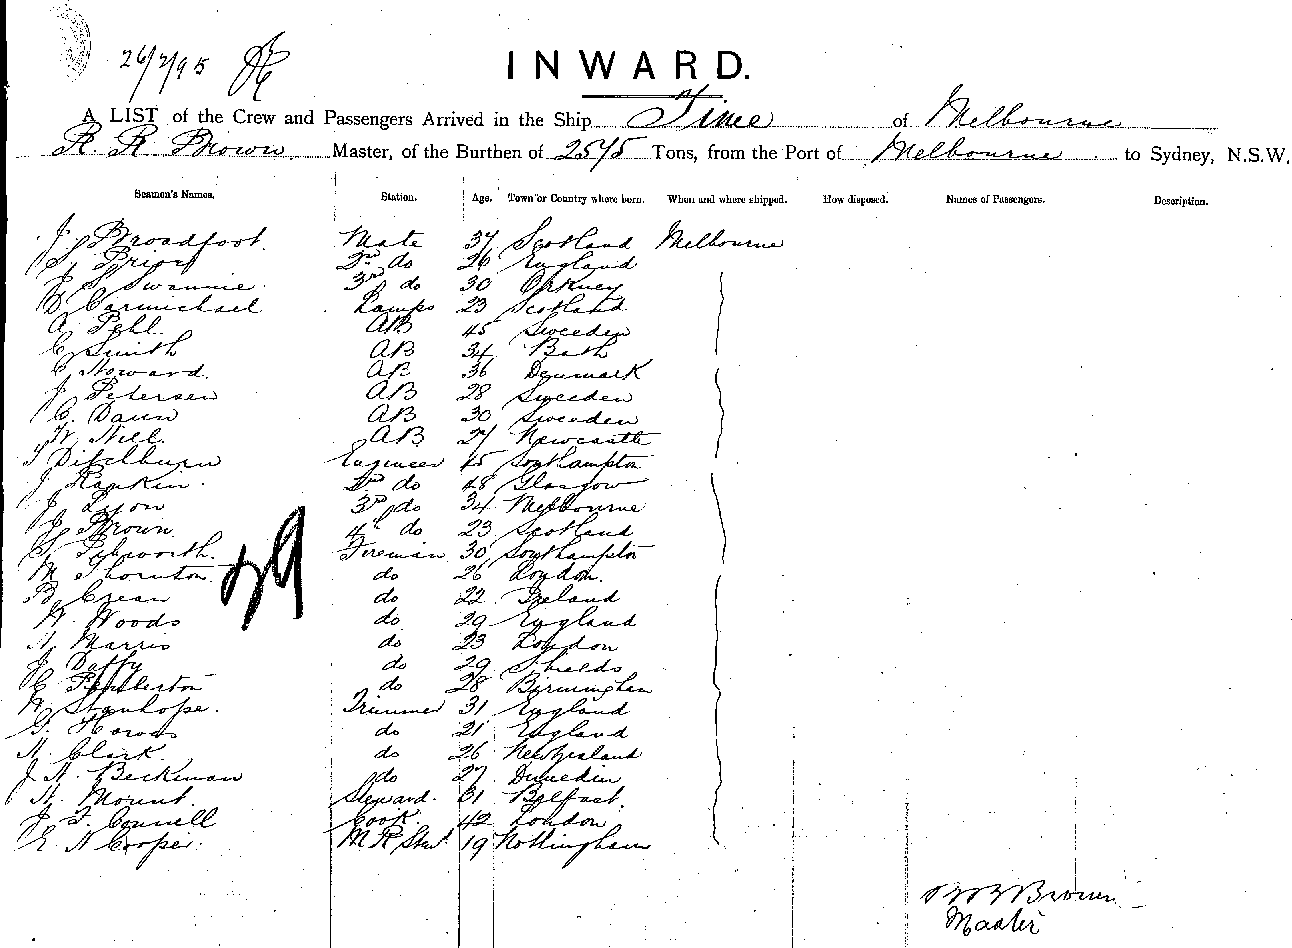 26/2/95
INWARD.
A LIST of the Crew and Passengers Arrived in the Ship Time of Melbourne
R. R. Brown Master, of the Burthen of 2575 Tons, from the Port of Melbourne to Sydney, N.S.W.
Seamen's Names. Station. Age. Town or Country where born. When and where shipped. How disposed. Names of Passengers. Description.
J. Broadfoot. Mate 37 Scotland Melbourne
S. Prior 2nd do 26 England
J. S. Swannie. 3rd do 30 Orkney
D. Carmichael Lamps 23 Scotland
A. Pehl. AB 45 Sweeden
C. Smith AB 34 Bath
C. Howard. AB 36 Denmark
J. Petersen AB 28 Sweeden
C. Daun AB 30 Sweeden
W. Nill. AB 27 Newcastle
T Ditchburn Engineer 45 Southampton
J. Rankin. 2nd do 48 Glasgow
J. Lyon 3rd do 34 Melbourne
J. Brown. 4th do 23 Scotland
Fireman 30 Southampton
M. Thornton. do 26 London.
B. Crean do 22 Ireland
W. Woods do 29 England
H. Harris do 23 London
J. Daffy do 29 Shields
C. Pemberton do 28 Birmingham
W. Stanhope. Trimmer 31 England
G. do 21 England
H. Clark. do 26 New Zealand
J. H. Beckman do 27 Dunedin
H. Mount. Steward. 31 Belfast.
J. T. Connell Cook. 42 London
E. H Cooper. M R Stwd 19 Nottingham
29
R R Brown
Master